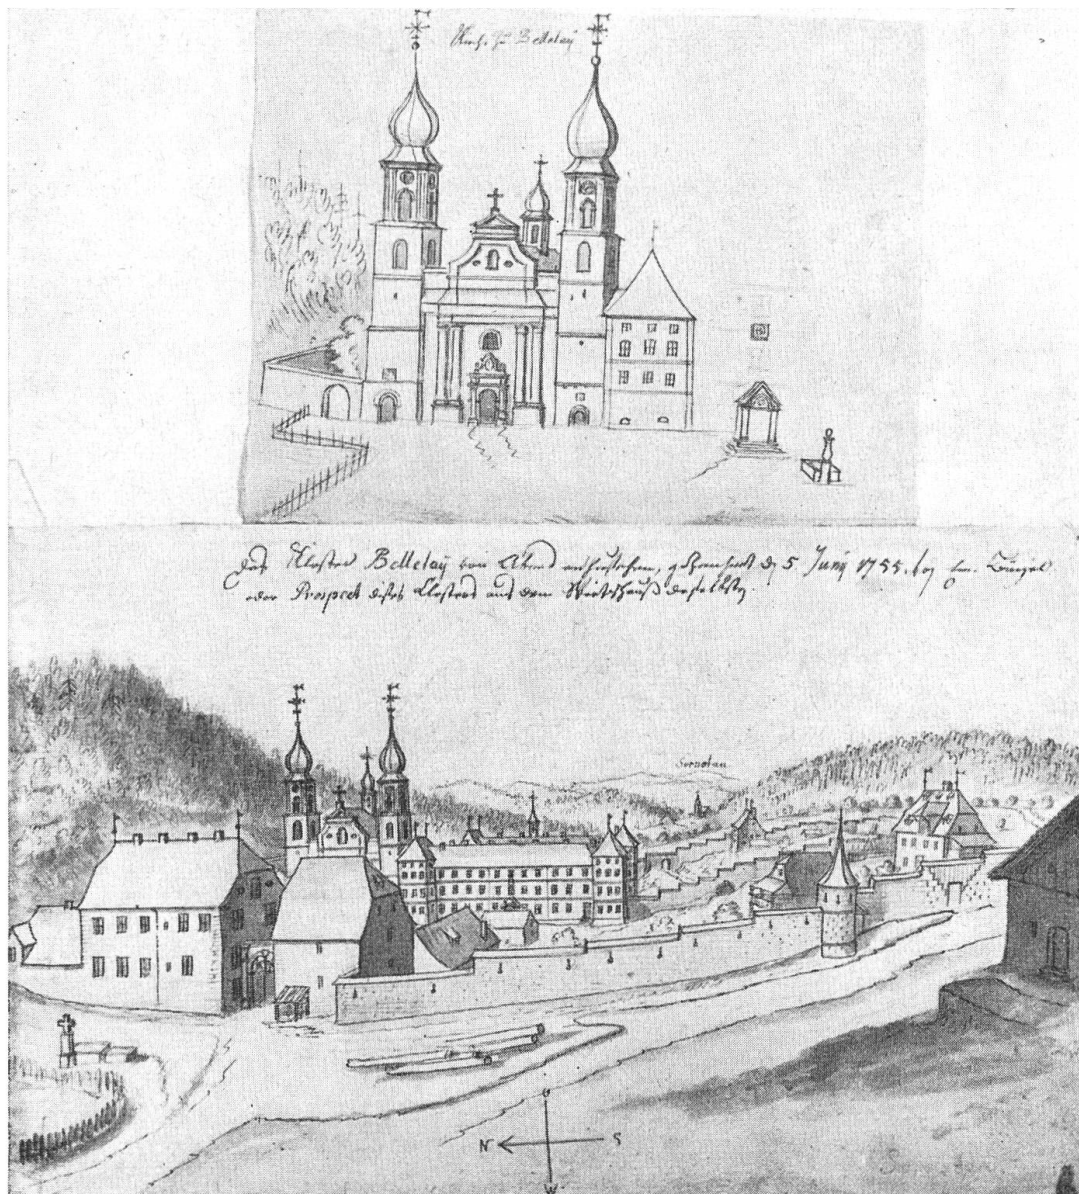 Kirch. zu Bellelaÿ
Das Kloster Bellelaÿ von Abend anzusehen, gezeichnet d. 5 Junÿ 1755. von Em. Büchel
oder Prospect dißes Closters aus dem Wirtshauß daselbsten
Sornetan
N S
O
W